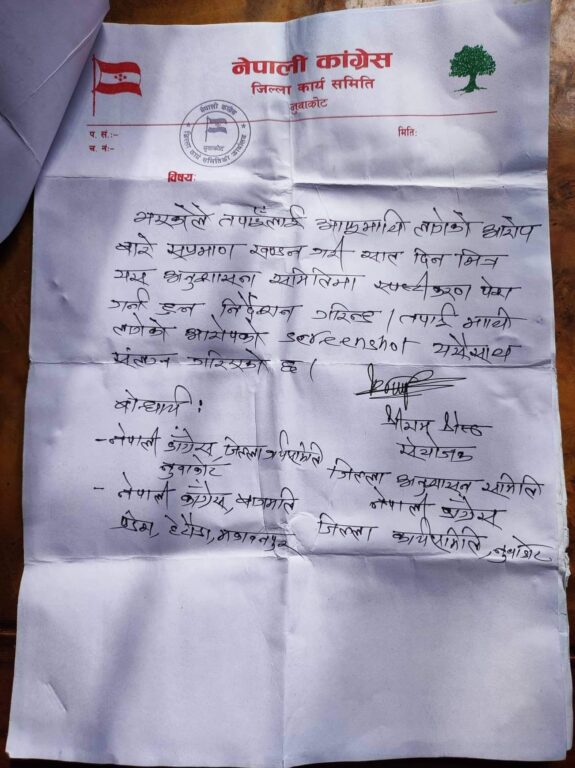 नेपाली कांग्रेस
जिल्ला कार्य समिति
नुवाकोट
नेपाली कांग्रेस
जिल्ला कार्य समितिको कार्यालय
नुवाकोट
प. सं.:-
च. नं.:-
मितिः
विषयः
तपाईंलाई आफूमाथि लागेको आरोप
बारे सप्रमाण खण्डन गरी सात दिन भित्र
यस अनुशासन समितिमा स्पष्टीकरण पेश
गर्न हुन निर्देशन गरिन्छ । तपाईं माथि
लागेको आरोपको screenshot यसैसाथ
संलग्न गरिएको छ ।
बोधार्थ :
संयोजक
- नेपाली कांग्रेस, जिल्ला कार्यसमिति
नुवाकोट
जिल्ला अनुशासन समिति
- नेपाली कांग्रेस, बागमति
नेपाली कांग्रेस
प्रदेश, हेटौडा, मकवानपुर
जिल्ला कार्यसमिति, नुवाकोट